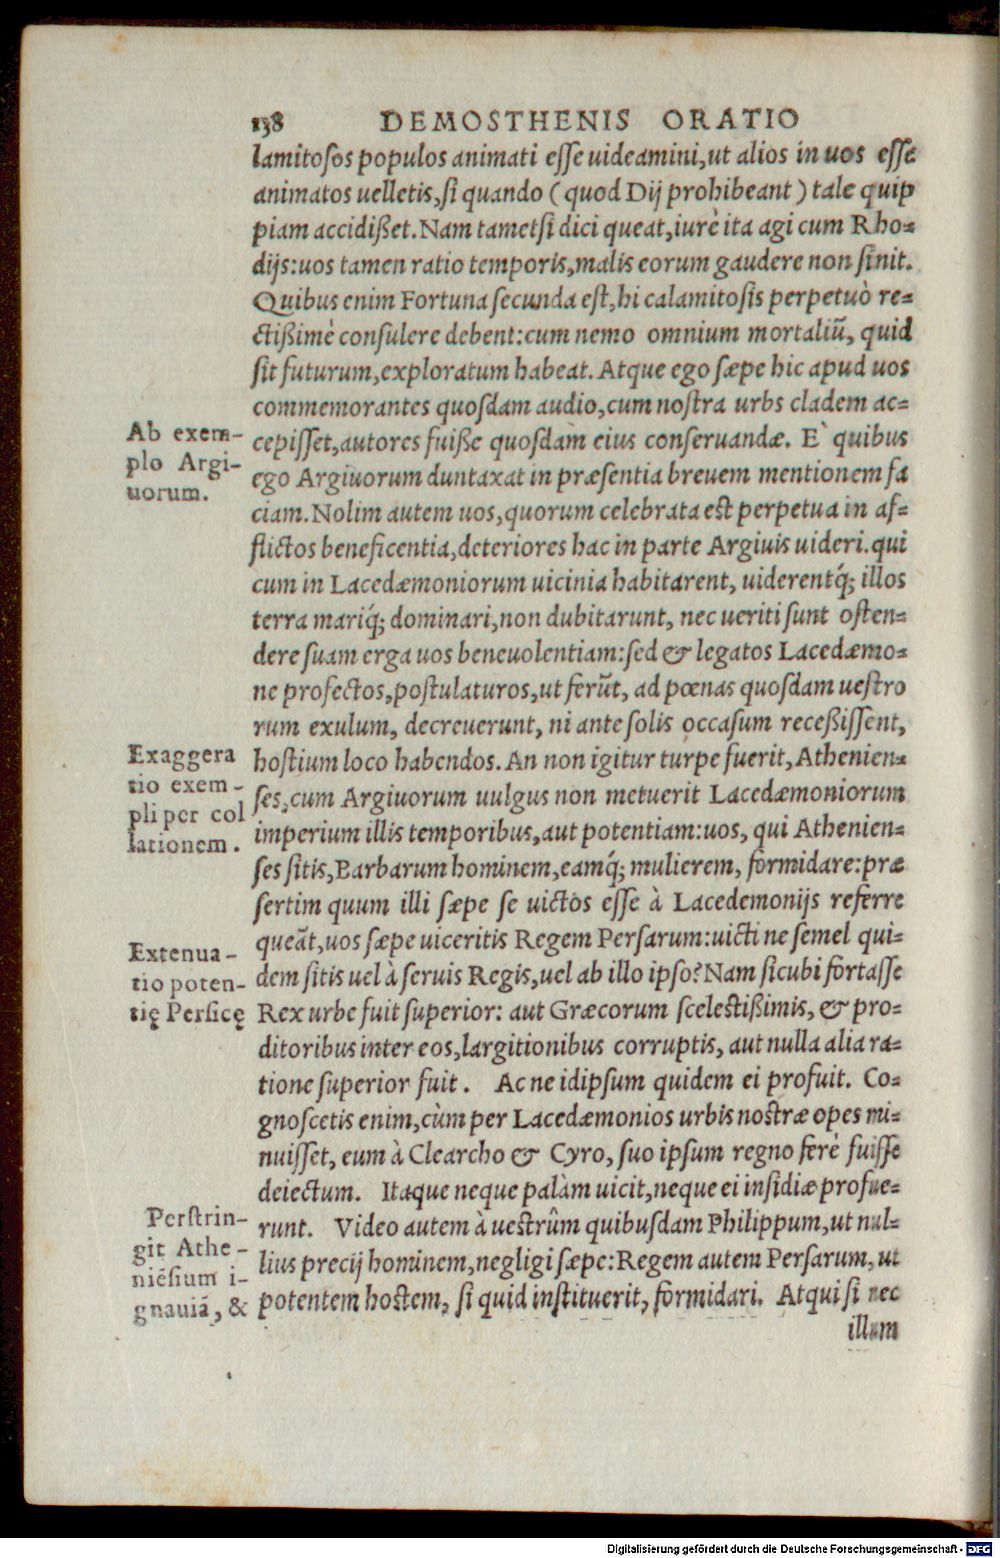 138 DEMOSTHENIS ORATIO
lamitosos populos animati esse uideamini, ut alios in uos esse
animatos uelletis, si quando (quod Dij prohibeant) tale quip
piam accidißet. Nam tametsi dici queat, iurè ita agi cum Rho-
dijs: uos tamen ratio temporis, malis eorum gaudere non sinit.
Quibus enim Fortuna secunda est, hi calamitosis perpetuò re-
ctißimè consulere debent: cum nemo omnium mortaliũ, quid
sit futurum, exploratum habeat. Atque ego sæpe hic apud uos
commemorantes quosdam audio, cum nostra urbs cladem ac-
Ab exem-
plo Argi-
uorum.
cepisset, autores fuiße quosdam eius conseruandæ. E` quibus
ego Argiuorum duntaxat in præsentia breuem mentionem fa
ciam. Nolim autem uos, quorum celebrata est perpetua in af-
flictos beneficentia, deteriores hac in parte Argiuis uideri. qui
cum in Lacedæmoniorum uicinia habitarent, uiderentq́; illos
terra mariq́; dominari, non dubitarunt, nec ueriti sunt osten-
dere suam erga uos beneuolentiam: sed & legatos Lacedæmo-
ne profectos, postulaturos, ut ferũt, ad pœnas quosdam uestro
rum exulum, decreuerunt, ni ante solis occasum receßissent,
Exaggera
tio exem-
pli per col
lationem.
hostium loco habendos. An non igitur turpe fuerit, Athenien-
ses, cum Argiuorum uulgus non metuerit Lacedæmoniorum
imperium illis temporibus, aut potentiam: uos, qui Athenien-
ses sitis, Barbarum hominem, eamq́; mulierem, formidare: præ
sertim quum illi sæpe se uictos esse à Lacedemonijs referre
queãt, uos sæpe uiceritis Regem Persarum: uicti ne semel qui-
Extenua-
tio poten-
tię Persicę
dem sitis uel à seruis Regis, uel ab illo ipso? Nam sicubi fortasse
Rex urbe fuit superior: aut Græcorum scelestißimis, & pro-
ditoribus inter eos, largitionibus corruptis, aut nulla alia ra-
tione superior fuit. Ac ne idipsum quidem ei profuit. Co-
gnoscetis enim, cùm per Lacedæmonios urbis nostræ opes mi-
nuisset, eum à Clearcho & Cyro, suo ipsum regno ferè fuisse
deiectum. Itaque neque palàm uicit, neque ei insidiæ profue-
Perstrin-
git Athe-
niẽsium i-
gnauiã, &
runt. Video autem à uestrûm quibusdam Philippum, ut nul-
lius precij hominem, negligi sæpe: Regem autem Persarum, ut
potentem hostem, si quid instituerit, formidari. Atqui si nec
illum
Digitalisierung gefördert durch die Deutsche Forschungsgemeinschaft - DFG